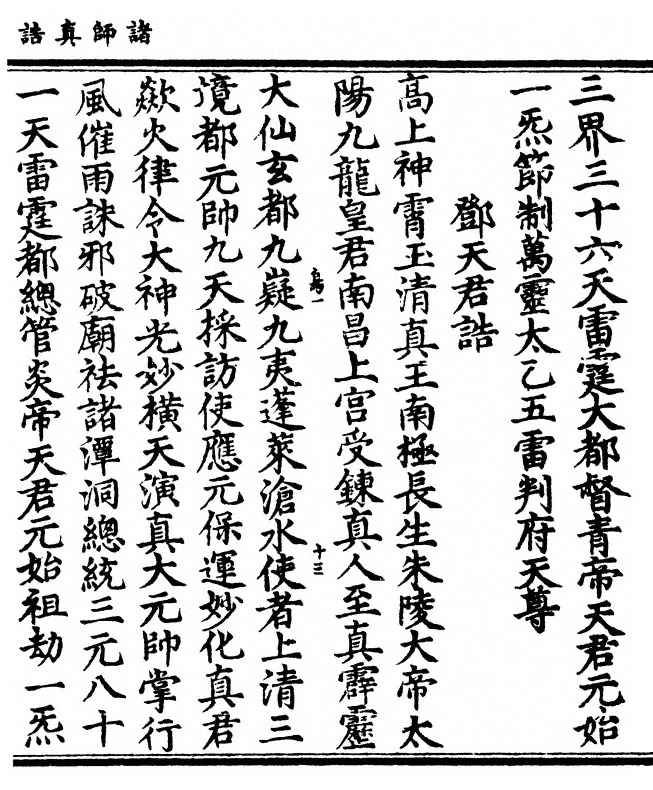 諸師真誥
三界三十六天雷霆大都督青帝天君元始
一炁節制萬靈太乙五雷判府天尊
鄧天君誥
高上神霄玉清真王南極長生朱陵大帝太
陽九龍皇君南昌上宮受鍊真人至真霹靂
鳥一
十三
大仙玄都九嶷九夷蓬萊滄水使者上清三
境都元帥九天採訪使應元保運妙化真君
歘火律令大神光妙橫天演真大元帥掌行
風催雨誅邪破廟祛諸潭洞總統三元八十
一天雷霆都總管炎帝天君元始祖劫一炁